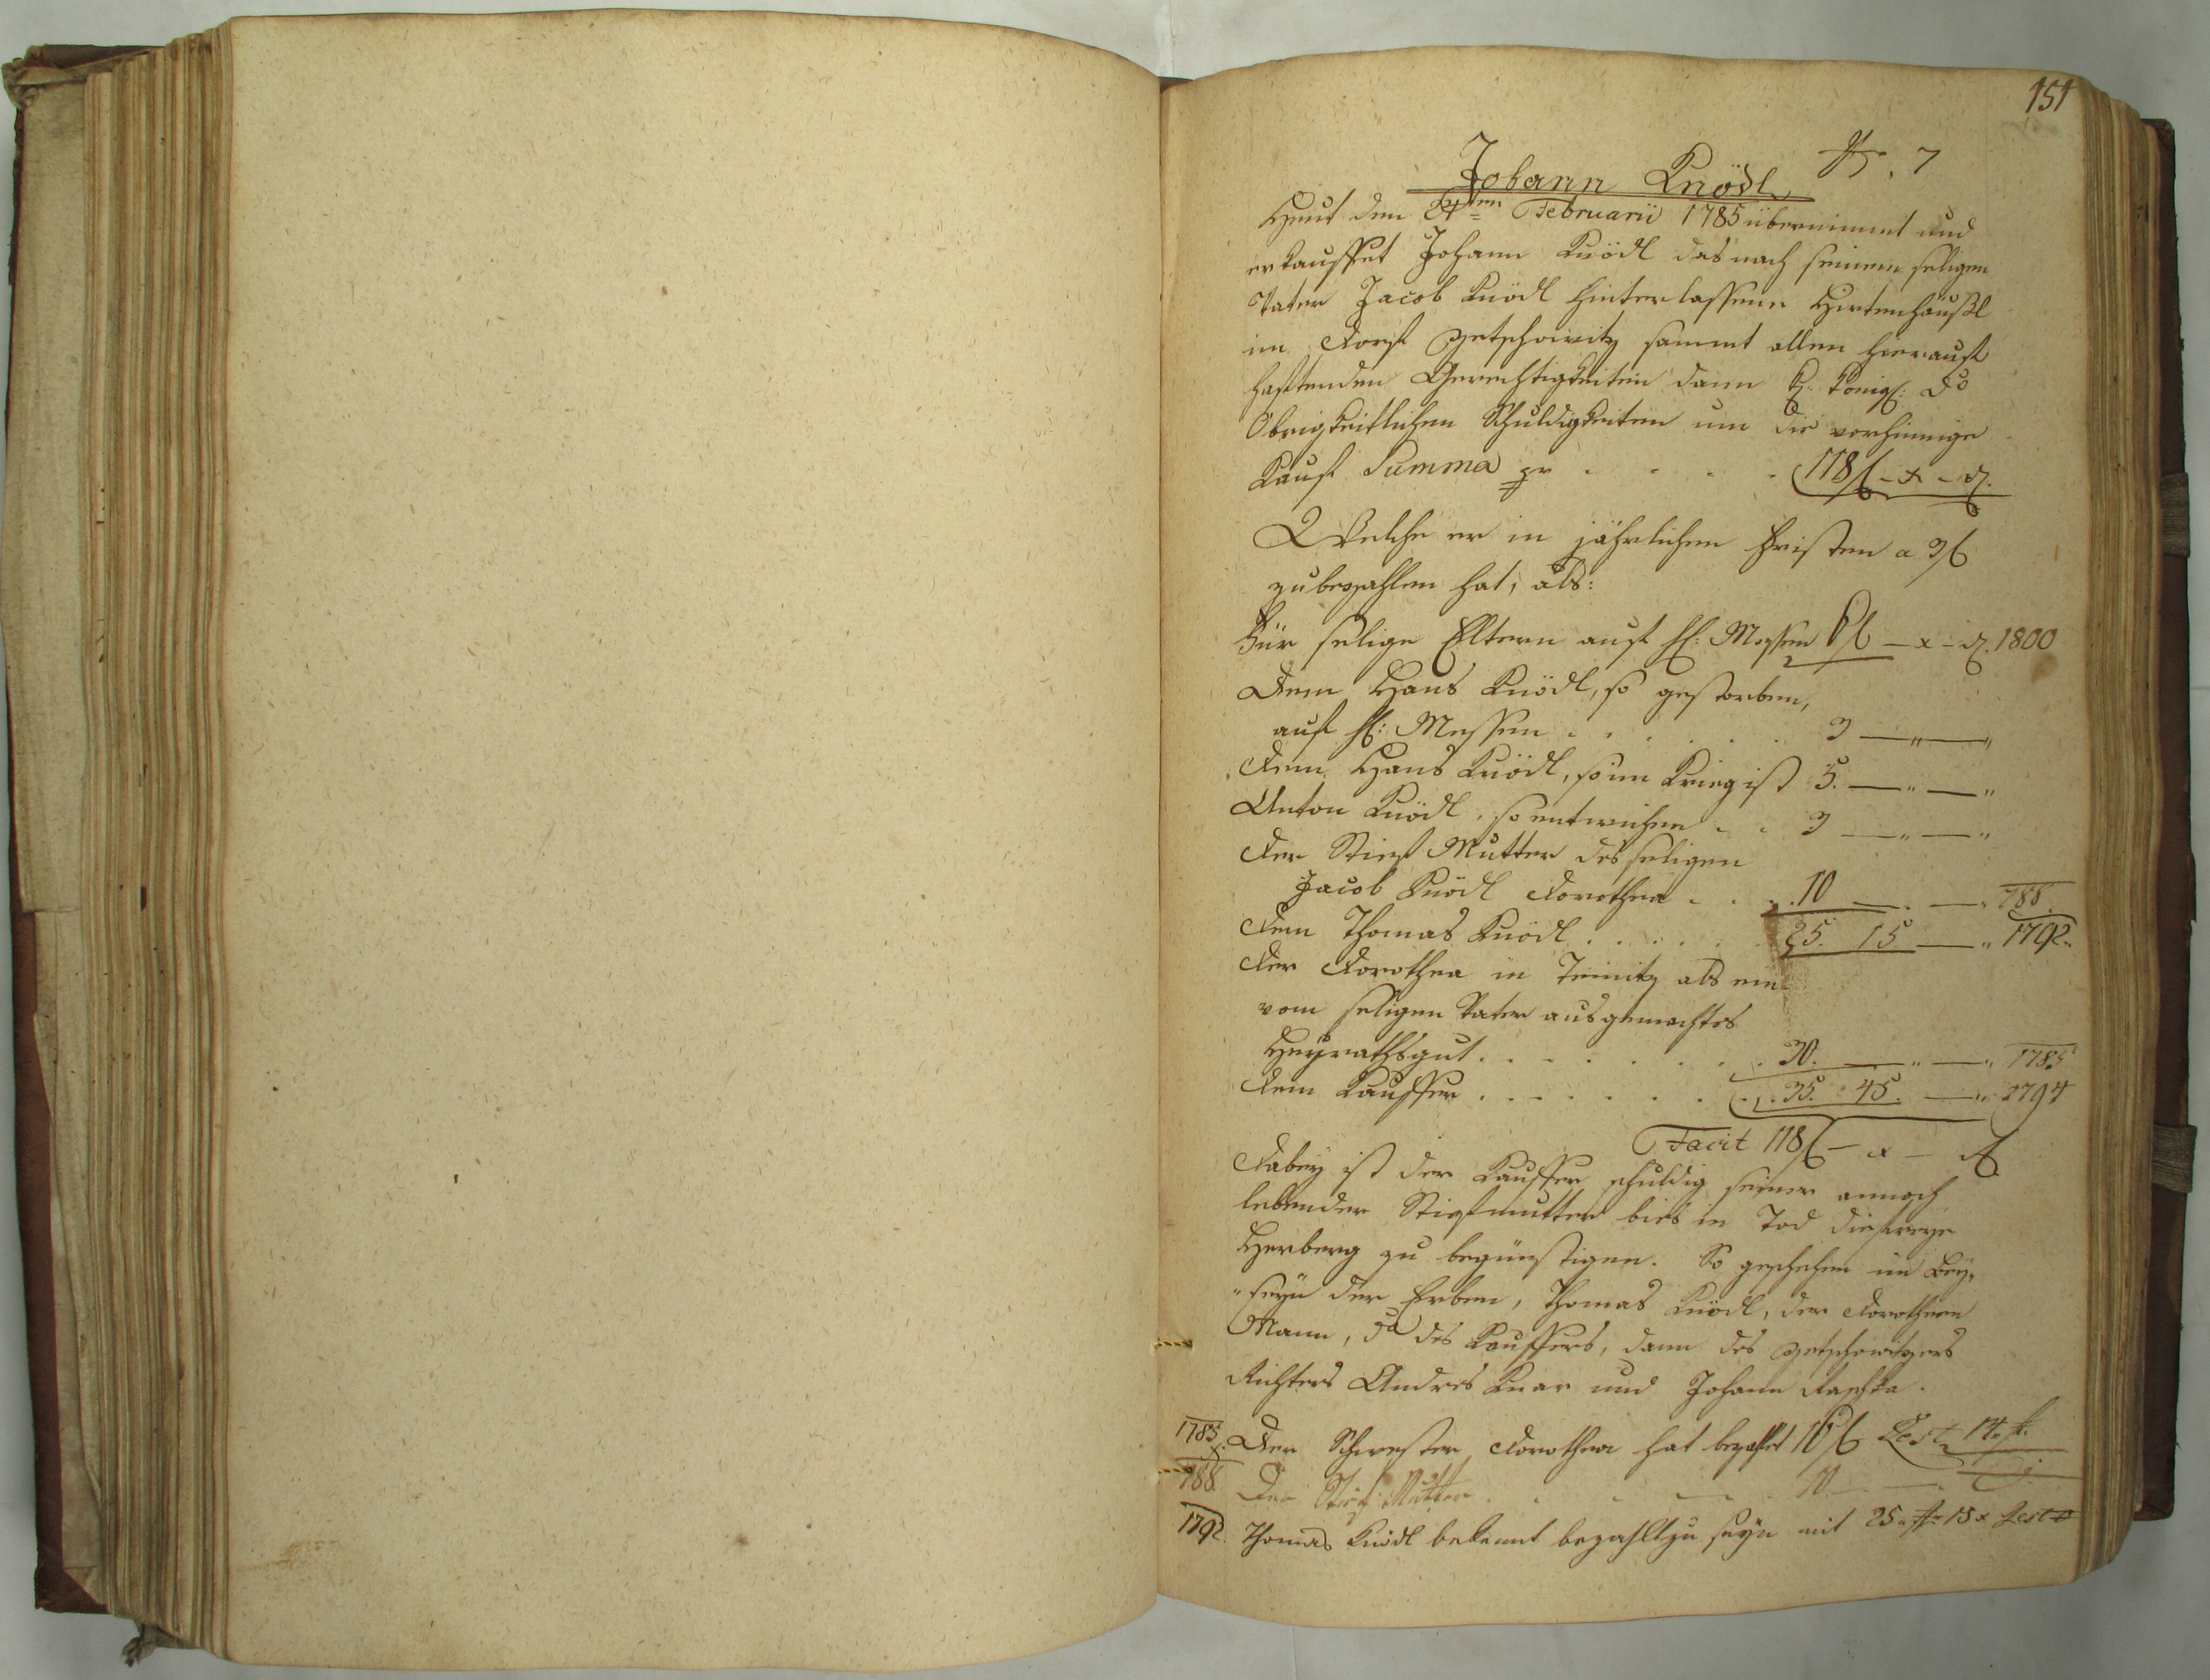 151
Johann Knödl № 7
Heut den 24ten Februarii 1785 übernimmt und
erkauffet Johann Knödl das nach seinem seligen
Vater Jacob Knödl hinterlassene Hirtenhäußl
im Dorf Zetschowitz sammt allen hierauf
haftenden Gerechtigkeiten dann K: Königl: do
Obrigkeitlichen Schuldigkeiten um die vorhinnige
Kauf Summa pr . . . . 118 f - x - d.
Welche er in jährlichen Fristen a 3 f
zu bezahlen hat, als:
Für selige Eltern auf hl: Messen 6 f - x - d. 1800
Dem Hans Knödl, so gestorben,
auf hl: Messen . . . . . 3 — " — "
Dem Hans Knödl, so im Krieg ist 5. — " — "
Anton Knödl, so entwichen . . 3 — " — "
Der Stief Mutter des seligen
Jacob Knödl Dorothea . . . . 10 — . — " 788.
Dem Thomas Knödl . . . . . . 25. 15 — " 1792.
Der Dorothea in Teinitz als ein
vom seligen Vater ausgemachtes
Heyrathsgut . . . . . . . 30. — " — " 1785
Dem Kauffer . . . . . . . 35. 45. — " 1794
Facit 118 f - x - d
Dabey ist der Kauffer schuldig seiner annoch
lebender Stiefmutter bies in Tod die freye
Herberg zu begünstigen. So geschehen im Bey-
"seyn der Erben, Thomas Knödl, der Dorotheen
Mann, do des Kauffers, dann des Zetschowitzers
Richters Andres Knar und Johann Raschka.
1785. Der Schwester Dorothea hat bezahlt 16 f Rest 14 f.
788. Der Stief Mutter . . . . 10 — .
1792. Thomas Knödl bekennt bezahlt zu seyn mit 25 f 15 x Rest 0